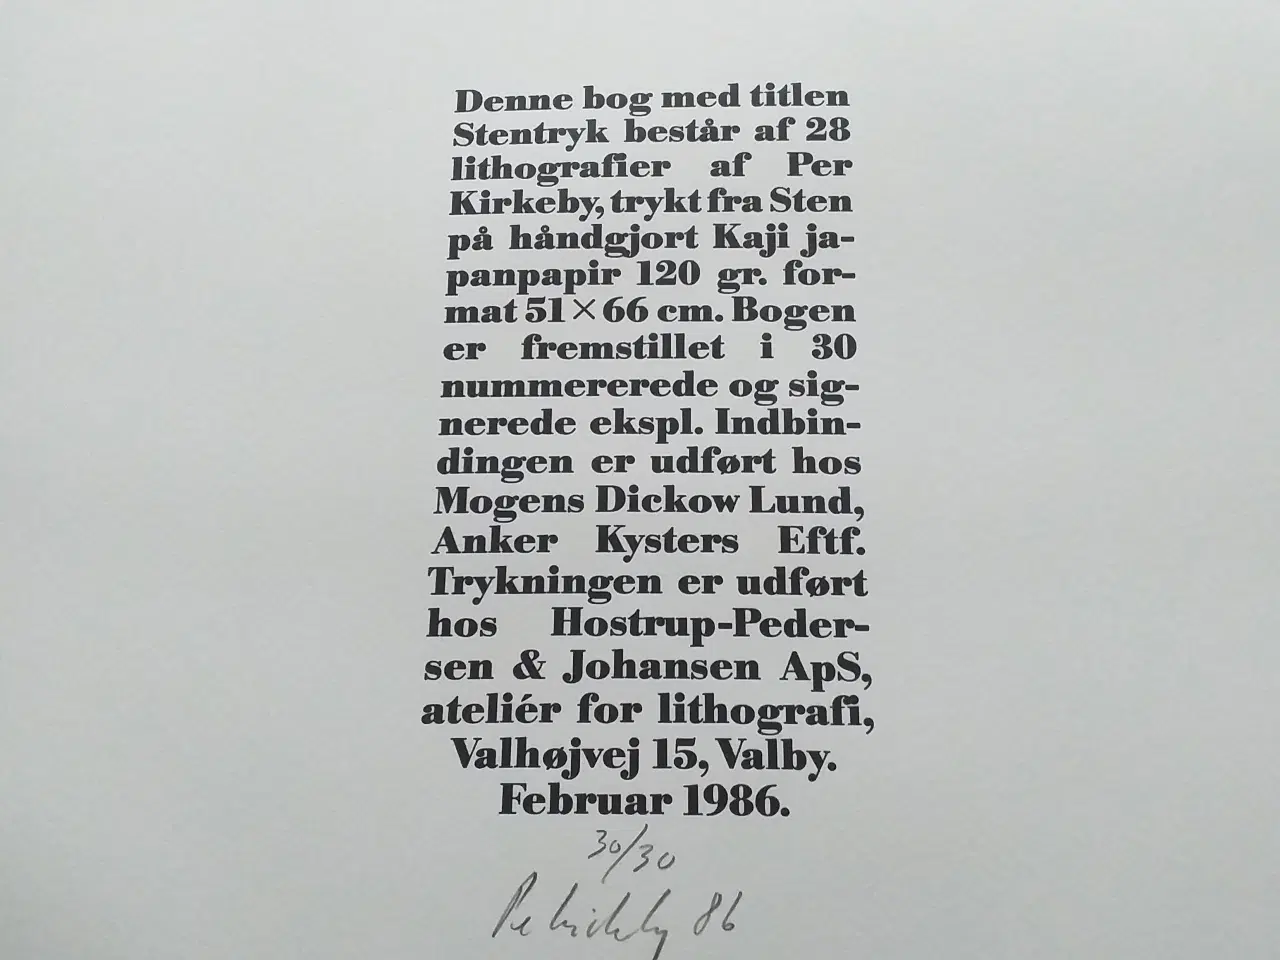 Denne bog med titlen
Stentryk består af 28
lithografier af Per
Kirkeby, trykt fra Sten
på håndgjort Kaji ja-
panpapir 120 gr. for-
mat 51×66 cm. Bogen
er fremstillet i 30
nummererede og sig-
nerede ekspl. Indbin-
dingen er udført hos
Mogens Dickow Lund,
Anker Kysters Eftf.
Trykningen er udført
hos Hostrup-Peder-
sen & Johansen ApS,
ateliér for lithografi,
Valhøjvej 15, Valby.
Februar 1986.
30/30
Per Kirkeby 86